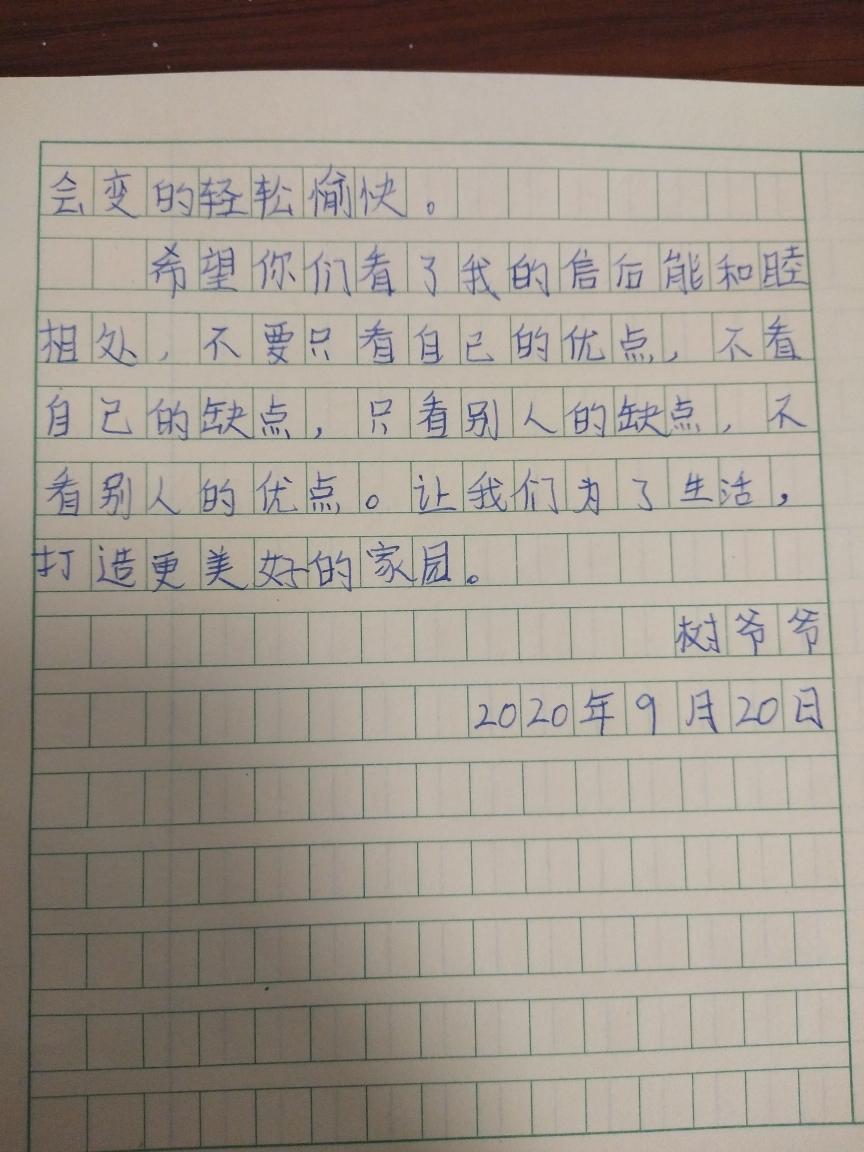 会变的轻松愉快。
希望你们看了我的信后能和睦
相处，不要只看自己的优点，不看
自己的缺点，只看别人的缺点，不
看别人的优点。让我们为了生活，
打造更美好的家园。
树爷爷
2020年9月20日